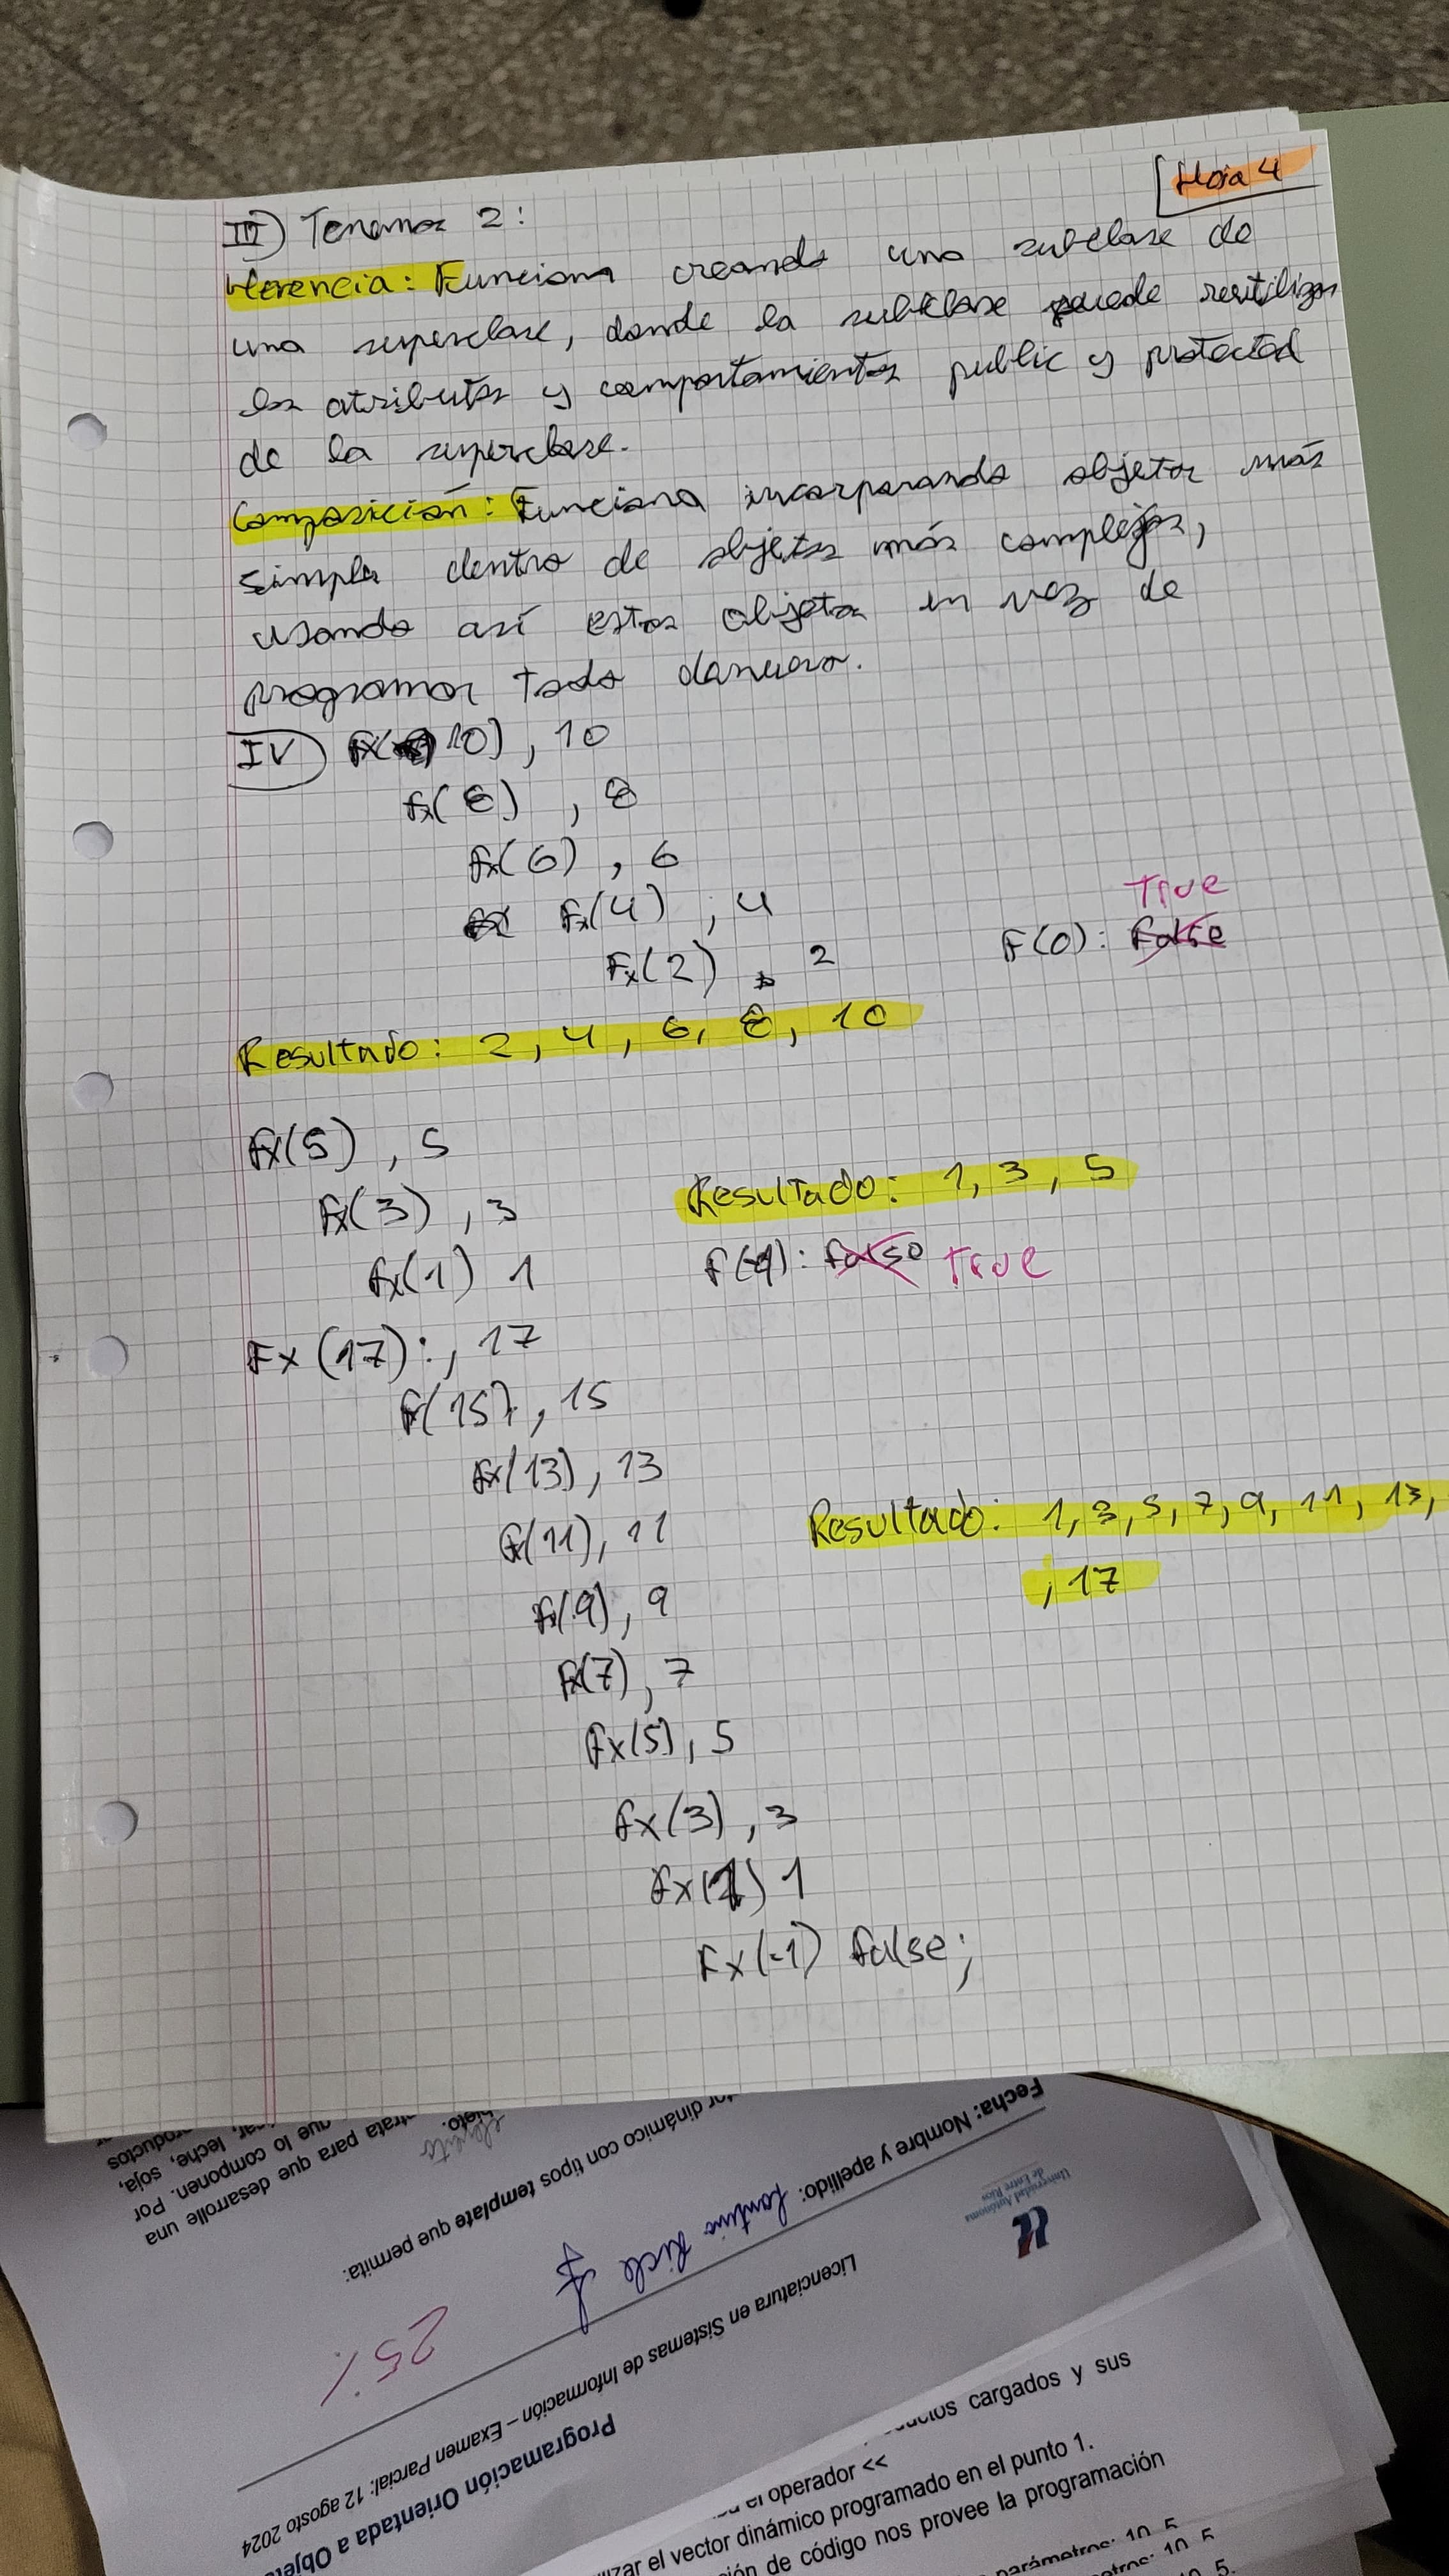 Hoja 4
III) Tenemos 2:
Herencia: Funciona creando una subclase de
una superclase, donde la subclase puede reutilizar
los atributos y comportamientos public y protected
de la superclase.
Composición: Funciona incorporando objetos más
simples dentro de objetos más complejos,
usando así estos objetos en vez de
programar todo denuevo.
IV) Fx(10), 10
fx(8), 8
fx(6), 6
fx(4), 4
Fx(2), 2
True
F(0): False
Resultado: 2, 4, 6, 8, 10
fx(5), 5
fx(3), 3
fx(1) 1
Resultado: 1, 3, 5
f(-1): false True
Fx(17):, 17
f(15), 15
fx(13), 13
fx(11), 11
fx(9), 9
fx(7), 7
fx(5), 5
fx(3), 3
fx(1) 1
Fx(-1) false;
Resultado: 1, 3, 5, 7, 9, 11, 13,
, 17
Programación Orientada a Obje
Licenciatura en Sistemas de Información – Examen Parcial: 12 agosto 2024
25%
Universidad Autónoma
de Entre Ríos
Fecha: Nombre y apellido:
tor dinámico con tipos template que permita:
trata para que desarrolle una
que lo componen. Por
ar, leche, soja,
roductos
cargados y sus
el operador <<
zar el vector dinámico programado en el punto 1.
ión de código nos provee la programación
parámetros: 10, 5
etros: 10, 5
10, 5.